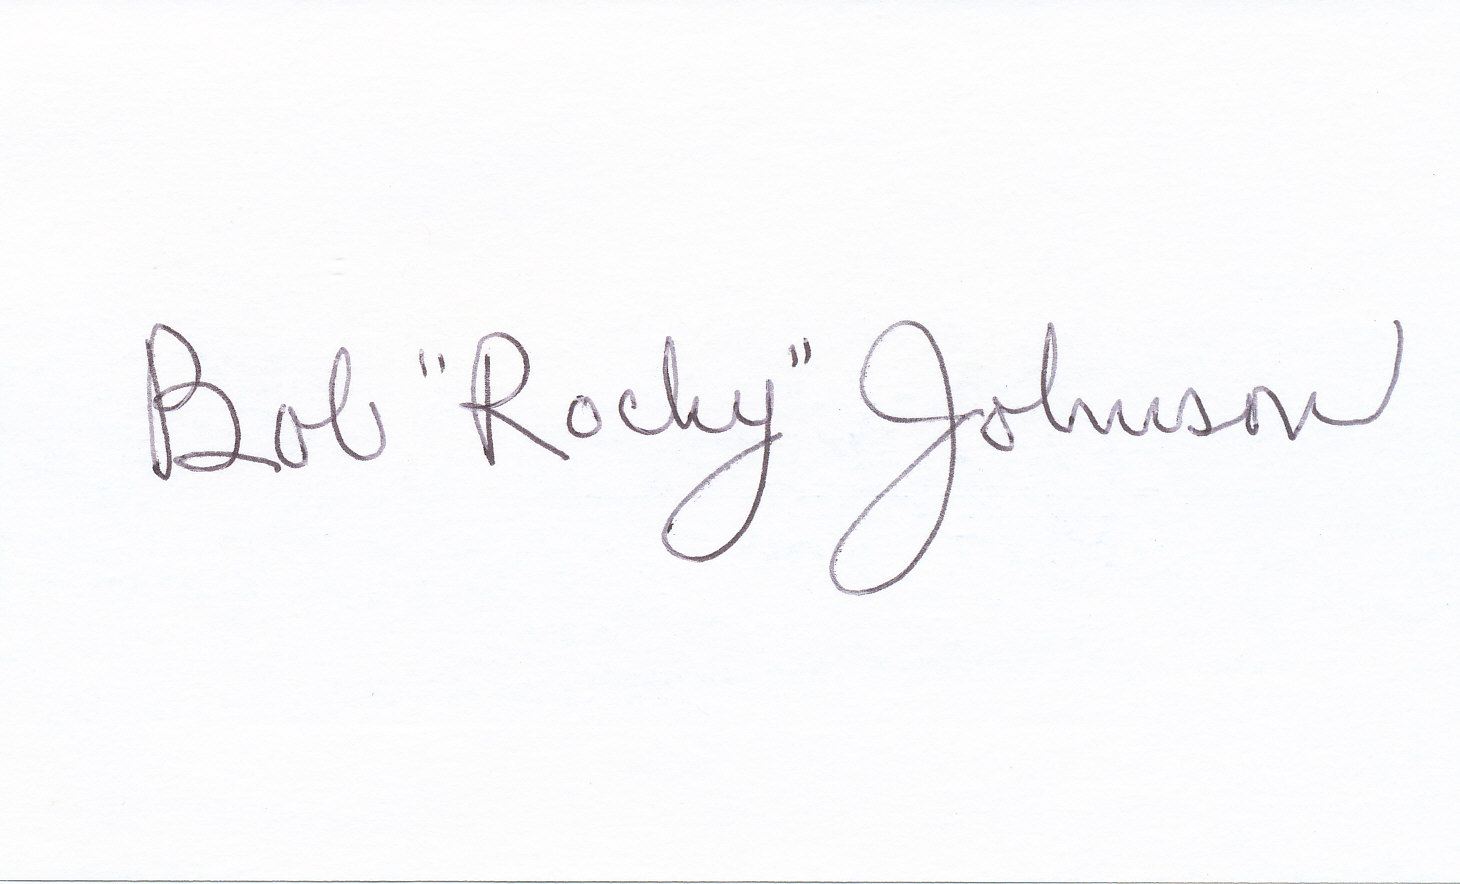 Bob "Rocky" Johnson